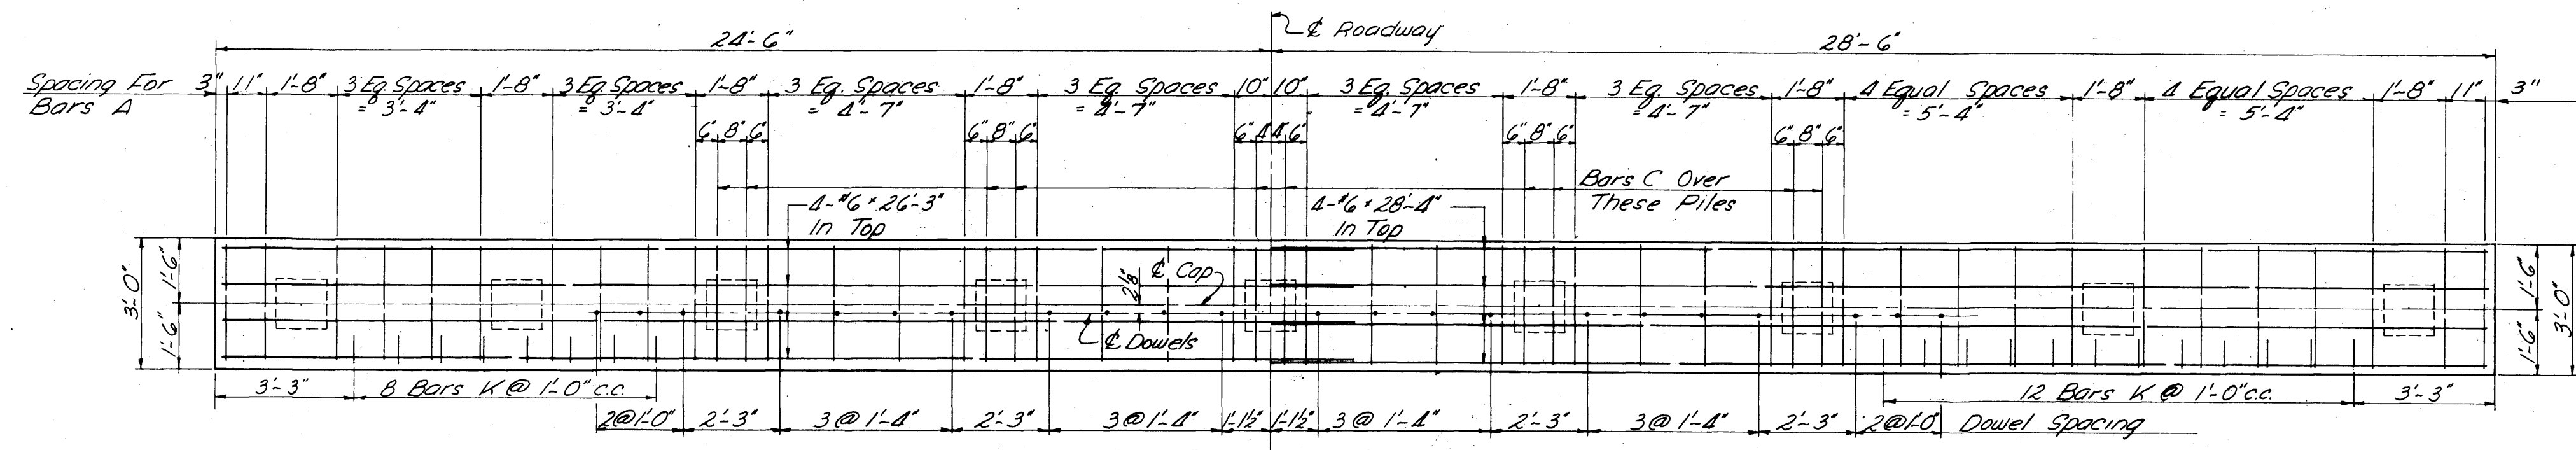 ℄ Roadway
24'-6"
28'-6"
Spacing For Bars A
3" 11" 1'-8" 3 Eq. Spaces = 3'-4" 1'-8" 3 Eq. Spaces = 3'-4" 1'-8" 3 Eq. Spaces = 4'-7" 1'-8" 3 Eq. Spaces = 4'-7" 10" 10" 3 Eq. Spaces = 4'-7" 1'-8" 3 Eq. Spaces = 4'-7" 1'-8" 4 Equal Spaces = 5'-4" 1'-8" 4 Equal Spaces = 5'-4" 1'-8" 11" 3"
6" 8" 6" 6" 8" 6" 6" 4" 4" 6" 6" 8" 6" 6" 8" 6"
Bars C Over
These Piles
4-#6 x 26'-3"
In Top
4-#6 x 28'-4"
In Top
3'-0"
1'-6"
1'-6"
2⅛"
℄ Cap
℄ Dowels
1'-6"
1'-6"
3'-0"
3'-3" 8 Bars K @ 1'-0" c.c.
12 Bars K @ 1'-0" c.c. 3'-3"
2@1'-0" 2'-3" 3@1'-4" 2'-3" 3@1'-4" 1'-1½" 1'-1½" 3@1'-4" 2'-3" 3@1'-4" 2'-3" 2@1'-0" Dowel Spacing